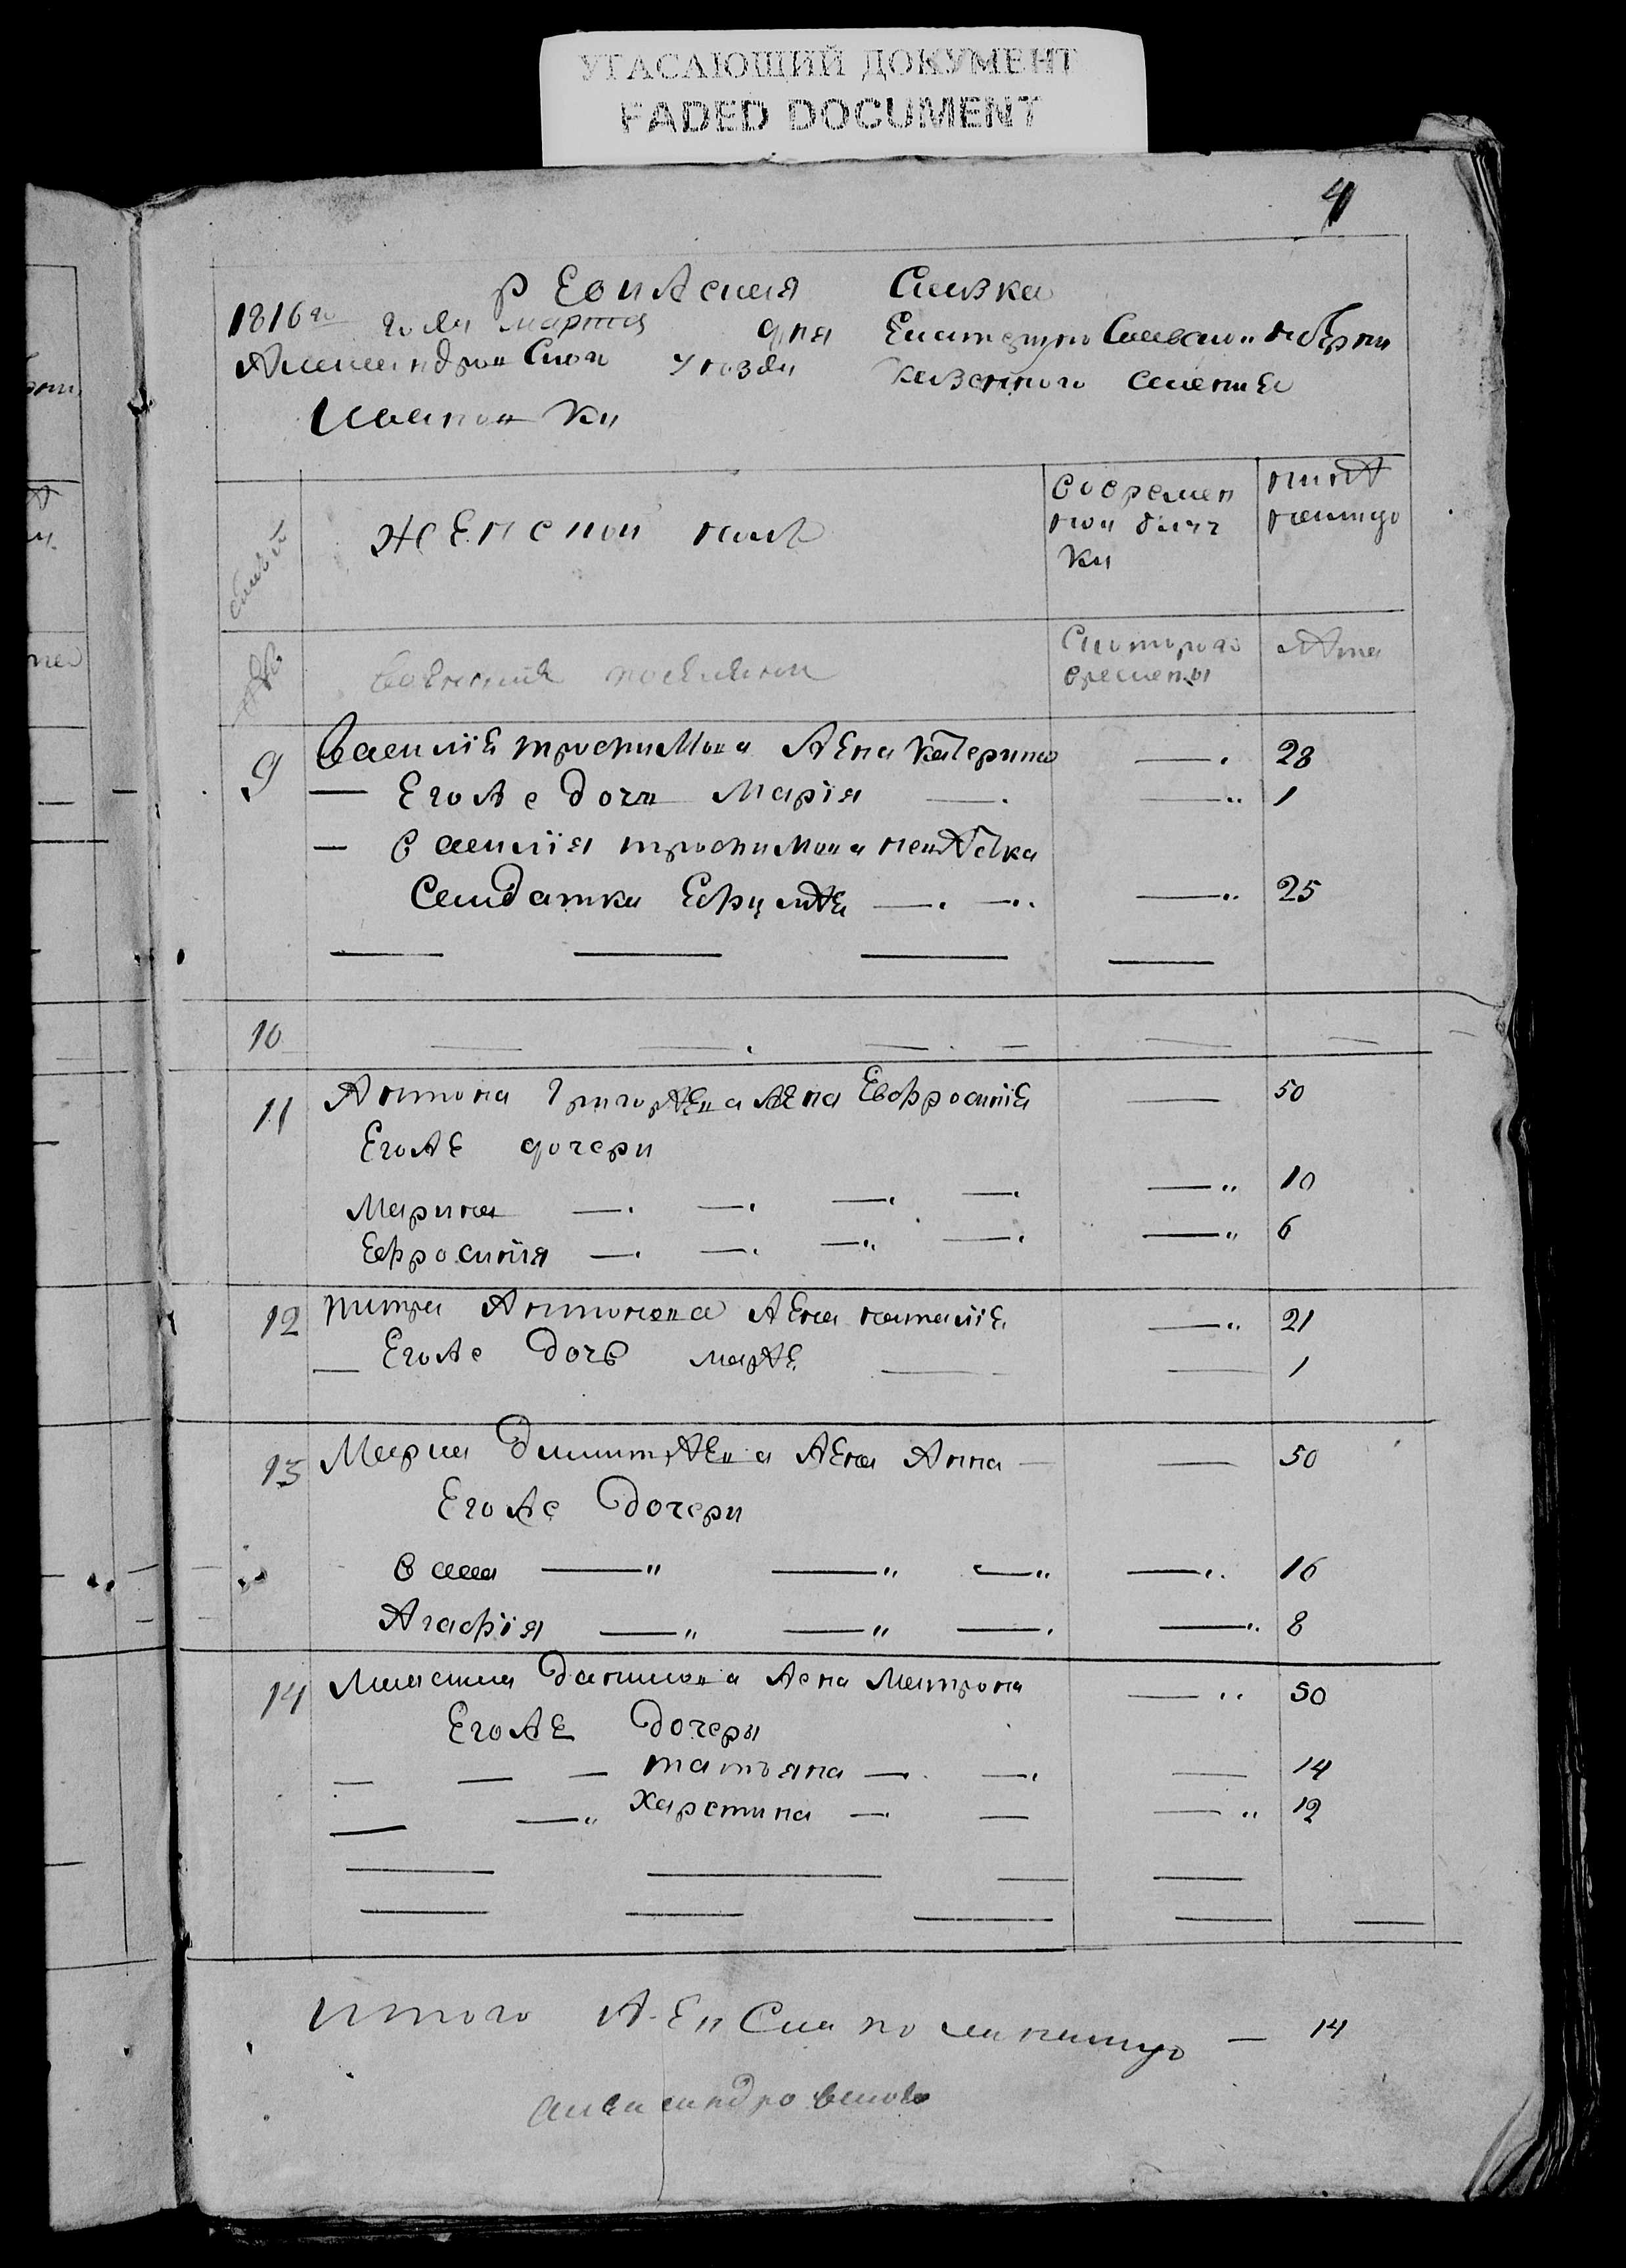 УГАСАЮЩИЙ ДОКУМЕНТ
FADED DOCUMENT
4
Ревизская Сказка
1816го года марта дня Екатеринославской губерни
Александровскои уезда казенного селения
Ивановки
семей
женскои полъ
во времен
нои отлуч
ки
ныне
налицо
№
С которого
времены
лета
9 Василіе трофимова жена Катерина — 28
— Егоже дочь Марія — 1
— Василия трофимова невестка
Салдатка Ефимя — 25
10
11 Антона Григорьева жена Евфросиніе — 50
Егоже дочери
Марина — 10
Ефросинія — 6
12 Питра Антонова жена наталіе — 21
— Егоже дочь марѳе — 1
13 Марка жена Анна — 50
Егоже дочери
васса — 16
Агафія — 8
14 Данилова жена Матрона — 50
Егоже дочери
татьяна — 14
Харстина — 12
итого женска пола налицо — 14